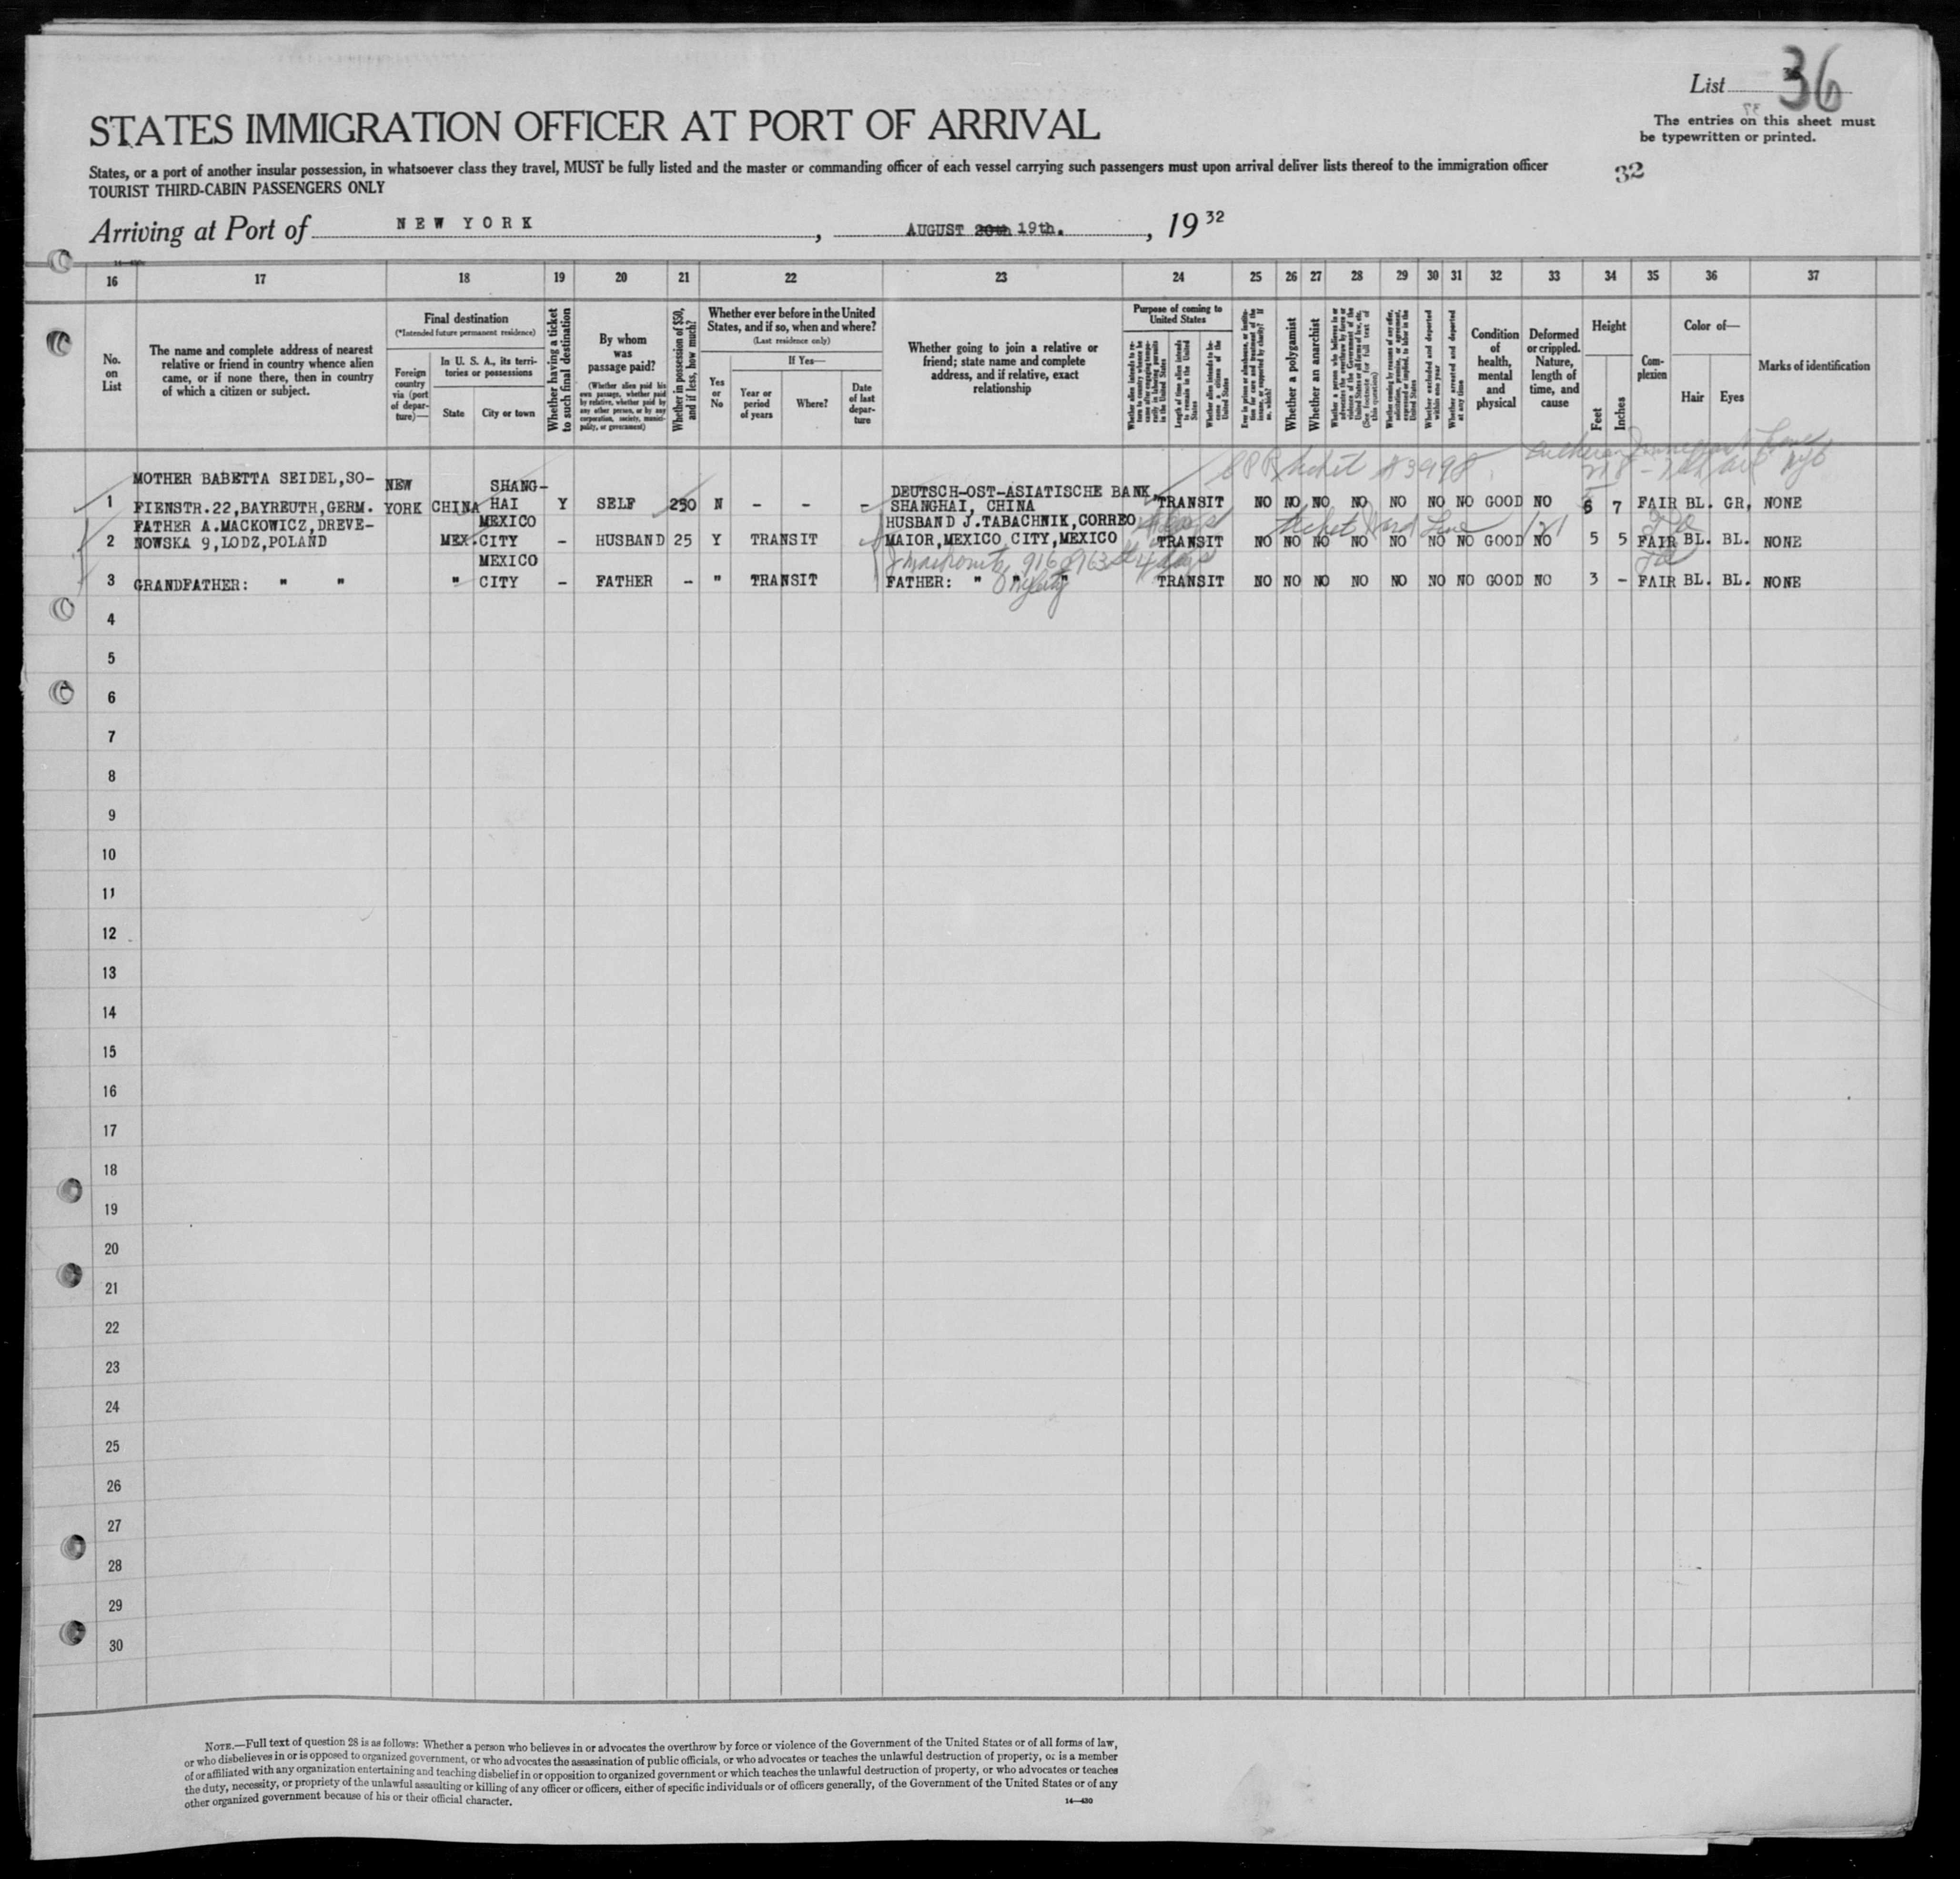 List 36
The entries on this sheet must
be typewritten or printed.
32
STATES IMMIGRATION OFFICER AT PORT OF ARRIVAL
States, or a port of another insular possession, in whatsoever class they travel, MUST be fully listed and the master or commanding officer of each vessel carrying such passengers must upon arrival deliver lists thereof to the immigration officer
TOURIST THIRD-CABIN PASSENGERS ONLY
Arriving at Port of NEW YORK, AUGUST 20th 19th., 1932
16 17 18 19 20 21 22 23 24 25 26 27 28 29 30 31 32 33 34 35 36 37
No. on List
The name and complete address of nearest
relative or friend in country whence alien
came, or if none there, then in country
of which a citizen or subject.
Final destination
(*Intended future permanent residence)
Foreign country via (port of departure)—
In U. S. A., its territories or possessions
State City or town
Whether having a ticket to such final destination
By whom was passage paid?
(Whether alien paid his own passage, whether paid by relative, whether paid by any other person, or by any corporation, society, municipality, or government)
Whether in possession of $50, and if less, how much?
Whether ever before in the United
States, and if so, when and where?
(Last residence only)
Yes or No
If Yes—
Year or period of years
Where?
Date of last departure
Whether going to join a relative or
friend; state name and complete
address, and if relative, exact
relationship
Purpose of coming to United States
Length of time alien intends to remain in the United States
Whether alien intends to become a citizen of the United States
Whether a polygamist
Whether an anarchist
Whether excluded and deported within one year
Whether arrested and deported at any time
Condition of health, mental and physical
Deformed or crippled. Nature, length of time, and cause
Height
Feet Inches
Complexion
Color of—
Hair Eyes
Marks of identification
1 MOTHER BABETTA SEIDEL,SO- NEW SHANG- DEUTSCH-OST-ASIATISCHE BANK,
FIENSTR.22,BAYREUTH,GERM. YORK CHINA HAI Y SELF 250 N - - - SHANGHAI, CHINA TRANSIT NO NO NO NO NO NO NO GOOD NO 5 7 FAIR BL. GR, NONE
FATHER A.MACKOWICZ,DREVE- MEXICO HUSBAND J.TABACHNIK,CORREO
2 NOWSKA 9,LODZ,POLAND MEX. CITY - HUSBAND 25 Y TRANSIT MAIOR,MEXICO CITY,MEXICO TRANSIT NO NO NO NO NO NO NO GOOD NO 5 5 FAIR BL. BL. NONE
MEXICO
3 GRANDFATHER: " " " CITY - FATHER - " TRANSIT FATHER: " " " TRANSIT NO NO NO NO NO NO NO GOOD NO 3 - FAIR BL. BL. NONE
4
5
6
7
8
9
10
11
12
13
14
15
16
17
18
19
20
21
22
23
24
25
26
27
28
29
30
NOTE.—Full text of question 28 is as follows: Whether a person who believes in or advocates the overthrow by force or violence of the Government of the United States or of all forms of law,
or who disbelieves in or is opposed to organized government, or who advocates the assassination of public officials, or who advocates or teaches the unlawful destruction of property, or is a member
of or affiliated with any organization entertaining and teaching disbelief in or opposition to organized government or which teaches the unlawful destruction of property, or who advocates or teaches
the duty, necessity, or propriety of the unlawful assaulting or killing of any officer or officers, either of specific individuals or of officers generally, of the Government of the United States or of any
other organized government because of his or their official character.
14—430